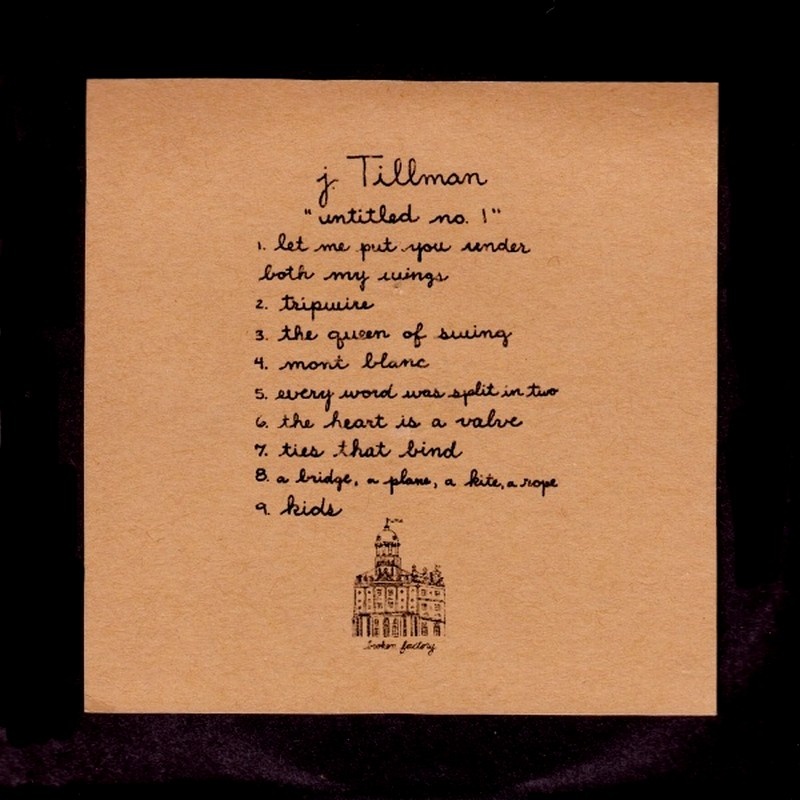 j. Tillman
"untitled no. 1"
1. let me put you under
both my wings
2. tripwire
3. the queen of swing
4. mont blanc
5. every word was split in two
6. the heart is a valve
7. ties that bind
8. a bridge, a plane, a kite, a rope
9. kids
broken factory